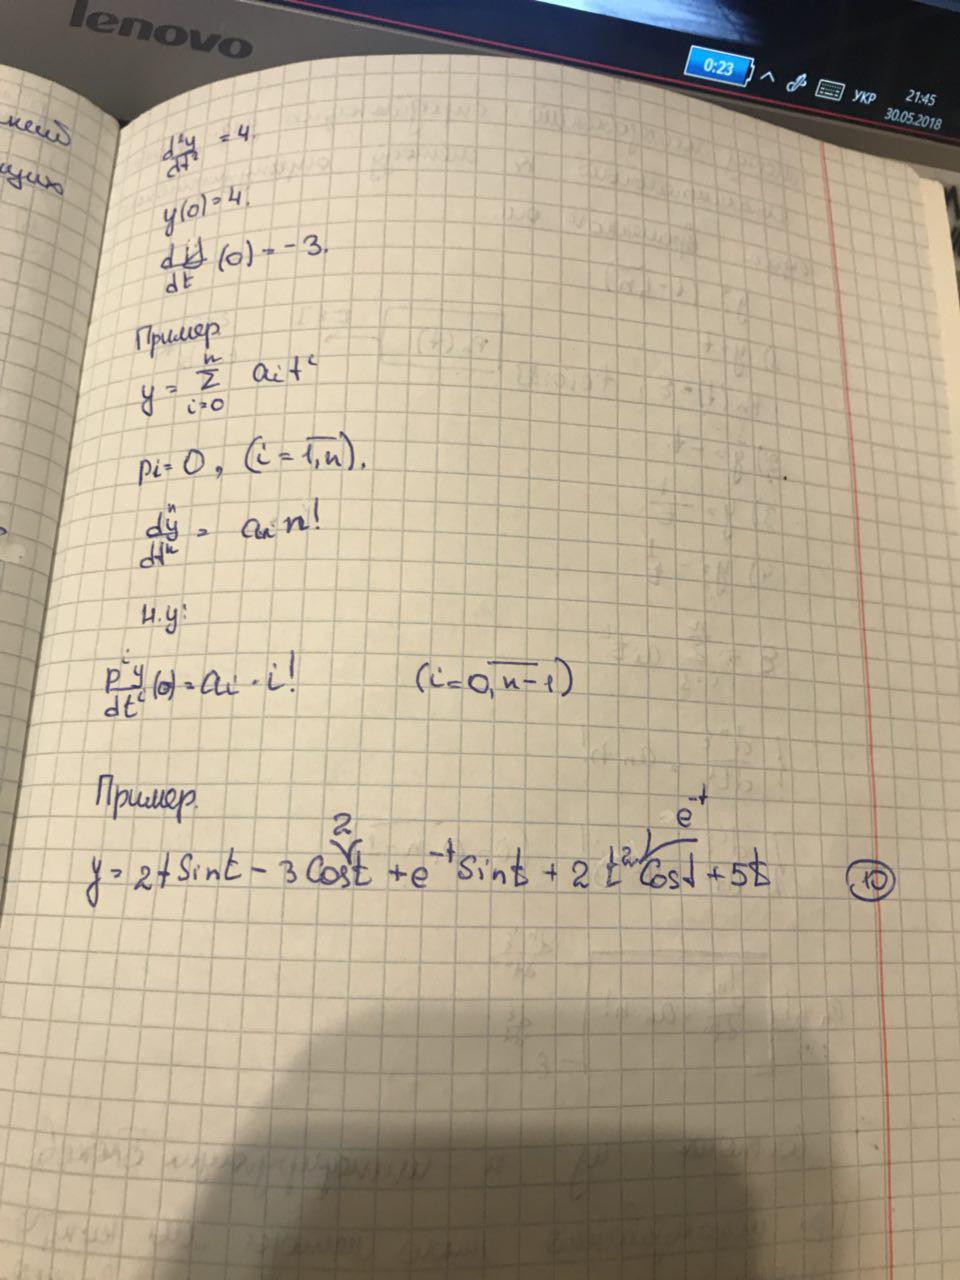 lenovo
0:23
УКР
21:45
30.05.2018
d²y/dt² = 4.
y(0)=4.
dy/dt (0) = -3.
Пример
y = Σ_{i=0}^{n} aᵢtⁱ
pi=0, (i = 1,n).
dⁿy/dtⁿ = aₙ n!
н.у:
pⁱy/dtⁱ (0) = aᵢ · i! (i=0, n-1)
Пример.
2 e⁻ᵗ
y = 2t Sint - 3 Cost + e⁻ᵗ Sint + 2 t² Cost + 5t 10